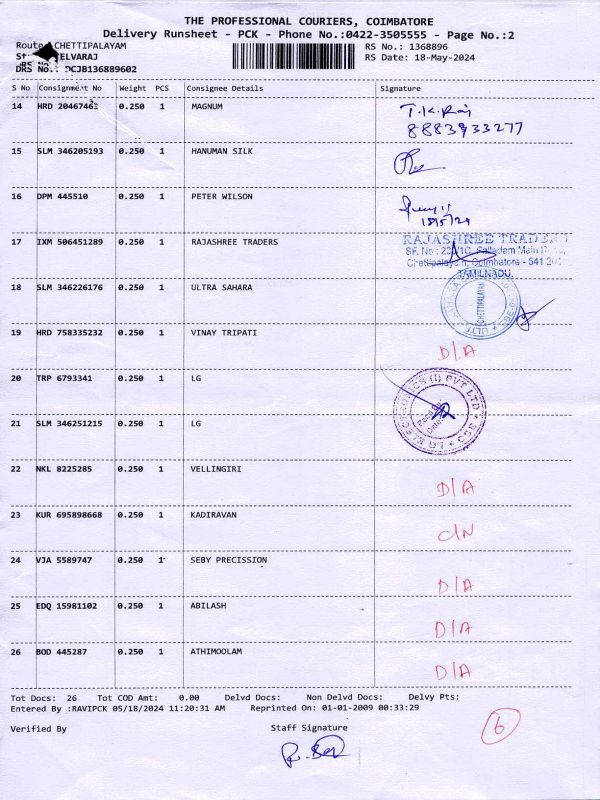 THE PROFESSIONAL COURIERS, COIMBATORE
Delivery Runsheet - PCK - Phone No.:0422-3505555 - Page No.:2
Route CHETTIPALAYAM RS No.: 1368896
ELVARAJ RS Date: 18-May-2024
DRS No.: DCJB136889602
S No Consignment No Weight PCS Consignee Details Signature
14 HRD 20467461 0.250 1 MAGNUM T.K.Raj
8883933277
15 SLM 346205193 0.250 1 HANUMAN SILK
16 DPM 445510 0.250 1 PETER WILSON
18/5/24
17 IXM 506451289 0.250 1 RAJASHREE TRADERS RAJASHREE TRADERS
Chettipalayam, Coimbatore - 641 201
TAMILNADU.
18 SLM 346226176 0.250 1 ULTRA SAHARA CHETTIPALAYAM
19 HRD 758335232 0.250 1 VINAY TRIPATI D/A
20 TRP 6793341 0.250 1 LG LG ELECTRONICS (I) PVT LTD
21 SLM 346251215 0.250 1 LG
22 NKL 8225285 0.250 1 VELLINGIRI D/A
23 KUR 695898668 0.250 1 KADIRAVAN C/N
24 VJA 5589747 0.250 1 SEBY PRECISSION D/A
25 EDQ 15981102 0.250 1 ABILASH D/A
26 BOD 445287 0.250 1 ATHIMOOLAM D/A
Tot Docs: 26 Tot COD Amt: 0.00 Delvd Docs: Non Delvd Docs: Delvy Pts:
Entered By :RAVIPCK 05/18/2024 11:20:31 AM Reprinted On: 01-01-2009 00:33:29
6
Verified By Staff Signature